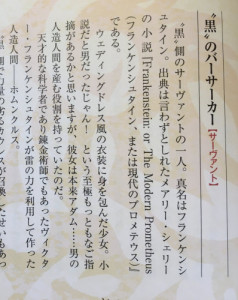 〝黒〟のバーサーカー【サーヴァント】
〝黒〟側のサーヴァントの一人。真名はフランケンシ
ュタイン。出典は言わずとしれたメアリー・シェリー
の小説『Frankenstein: or The Modern Prometheus
（フランケンシュタイン、または現代のプロメテウス）』
である。
ウェディングドレス風の衣装に身を包んだ少女。小
説だと男だったじゃん！　という至極もっともなご指
摘があるかと思いますが、彼女は本来アダム……男の
人造人間を産む役割を持っていたのだ。
天才的な科学者であり錬金術師でもあったヴィクタ
ー・フランケンシュタインが雷の力を利用して作った
人造人間――ホムンクルス。